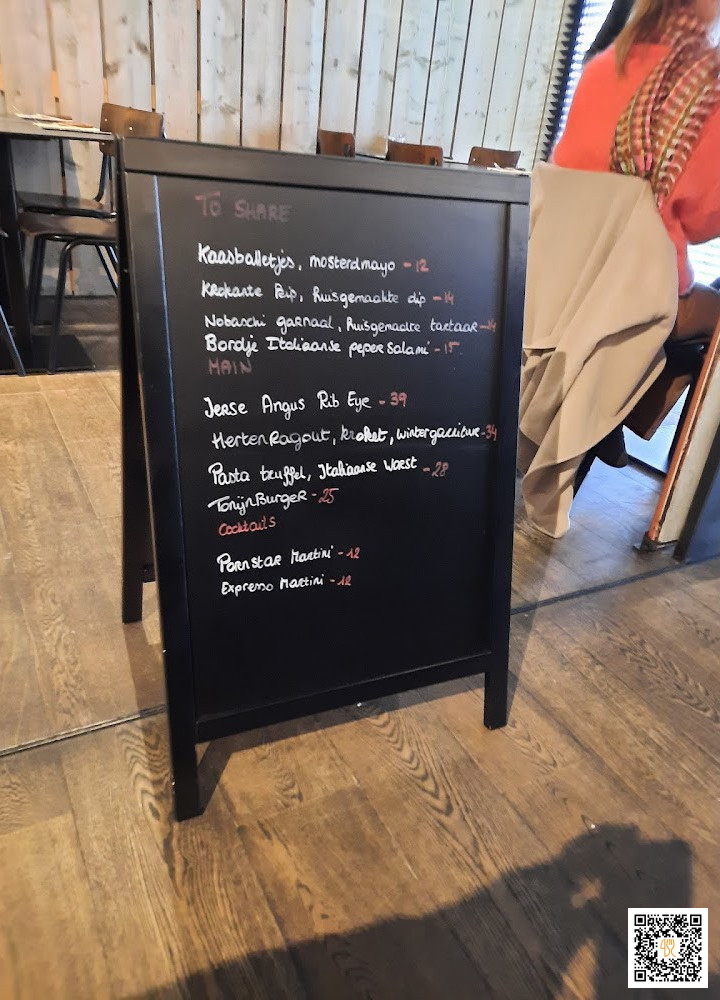 TO SHARE
Kaasballetjes, mosterdmayo - 12
Krokante kip, huisgemaakte dip - 14
Nobashi garnaal, huisgemaakte tartaar - 14
Bordje Italiaanse peper salami - 15
MAIN
Ierse Angus Rib Eye - 39
Herten Ragout, kroket, wintergarnituur - 34
Pasta truffel, Italiaanse worst - 28
Tonijn Burger - 25
Cocktails
Pornstar Martini - 12
Expresso Martini - 12